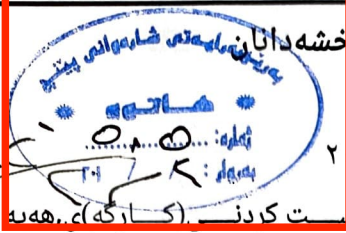 خشەدانان
بەڕێوەبەرایەتی شارەوانی پێنج
هـــاتوو
ژمارە: ٥٠٥
٢
بەروار: ٢ / / ٢٠١
ست کردنی (کارگە)ی هەیە